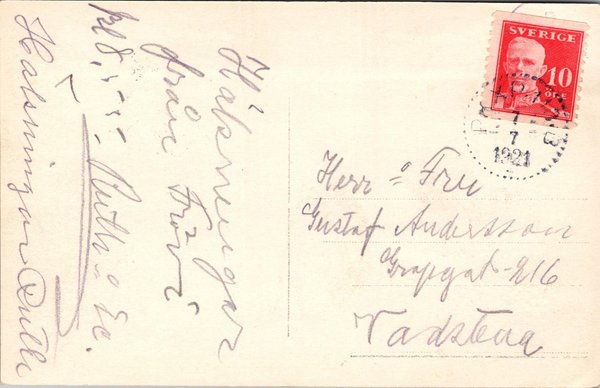 Hälsningar
från Frövi
Ruth o Ec.
Hälsningar Ruth
SVERIGE
10
ÖRE
1
7
1921
Herr o Fru
Gustaf Andersson
Vadstena